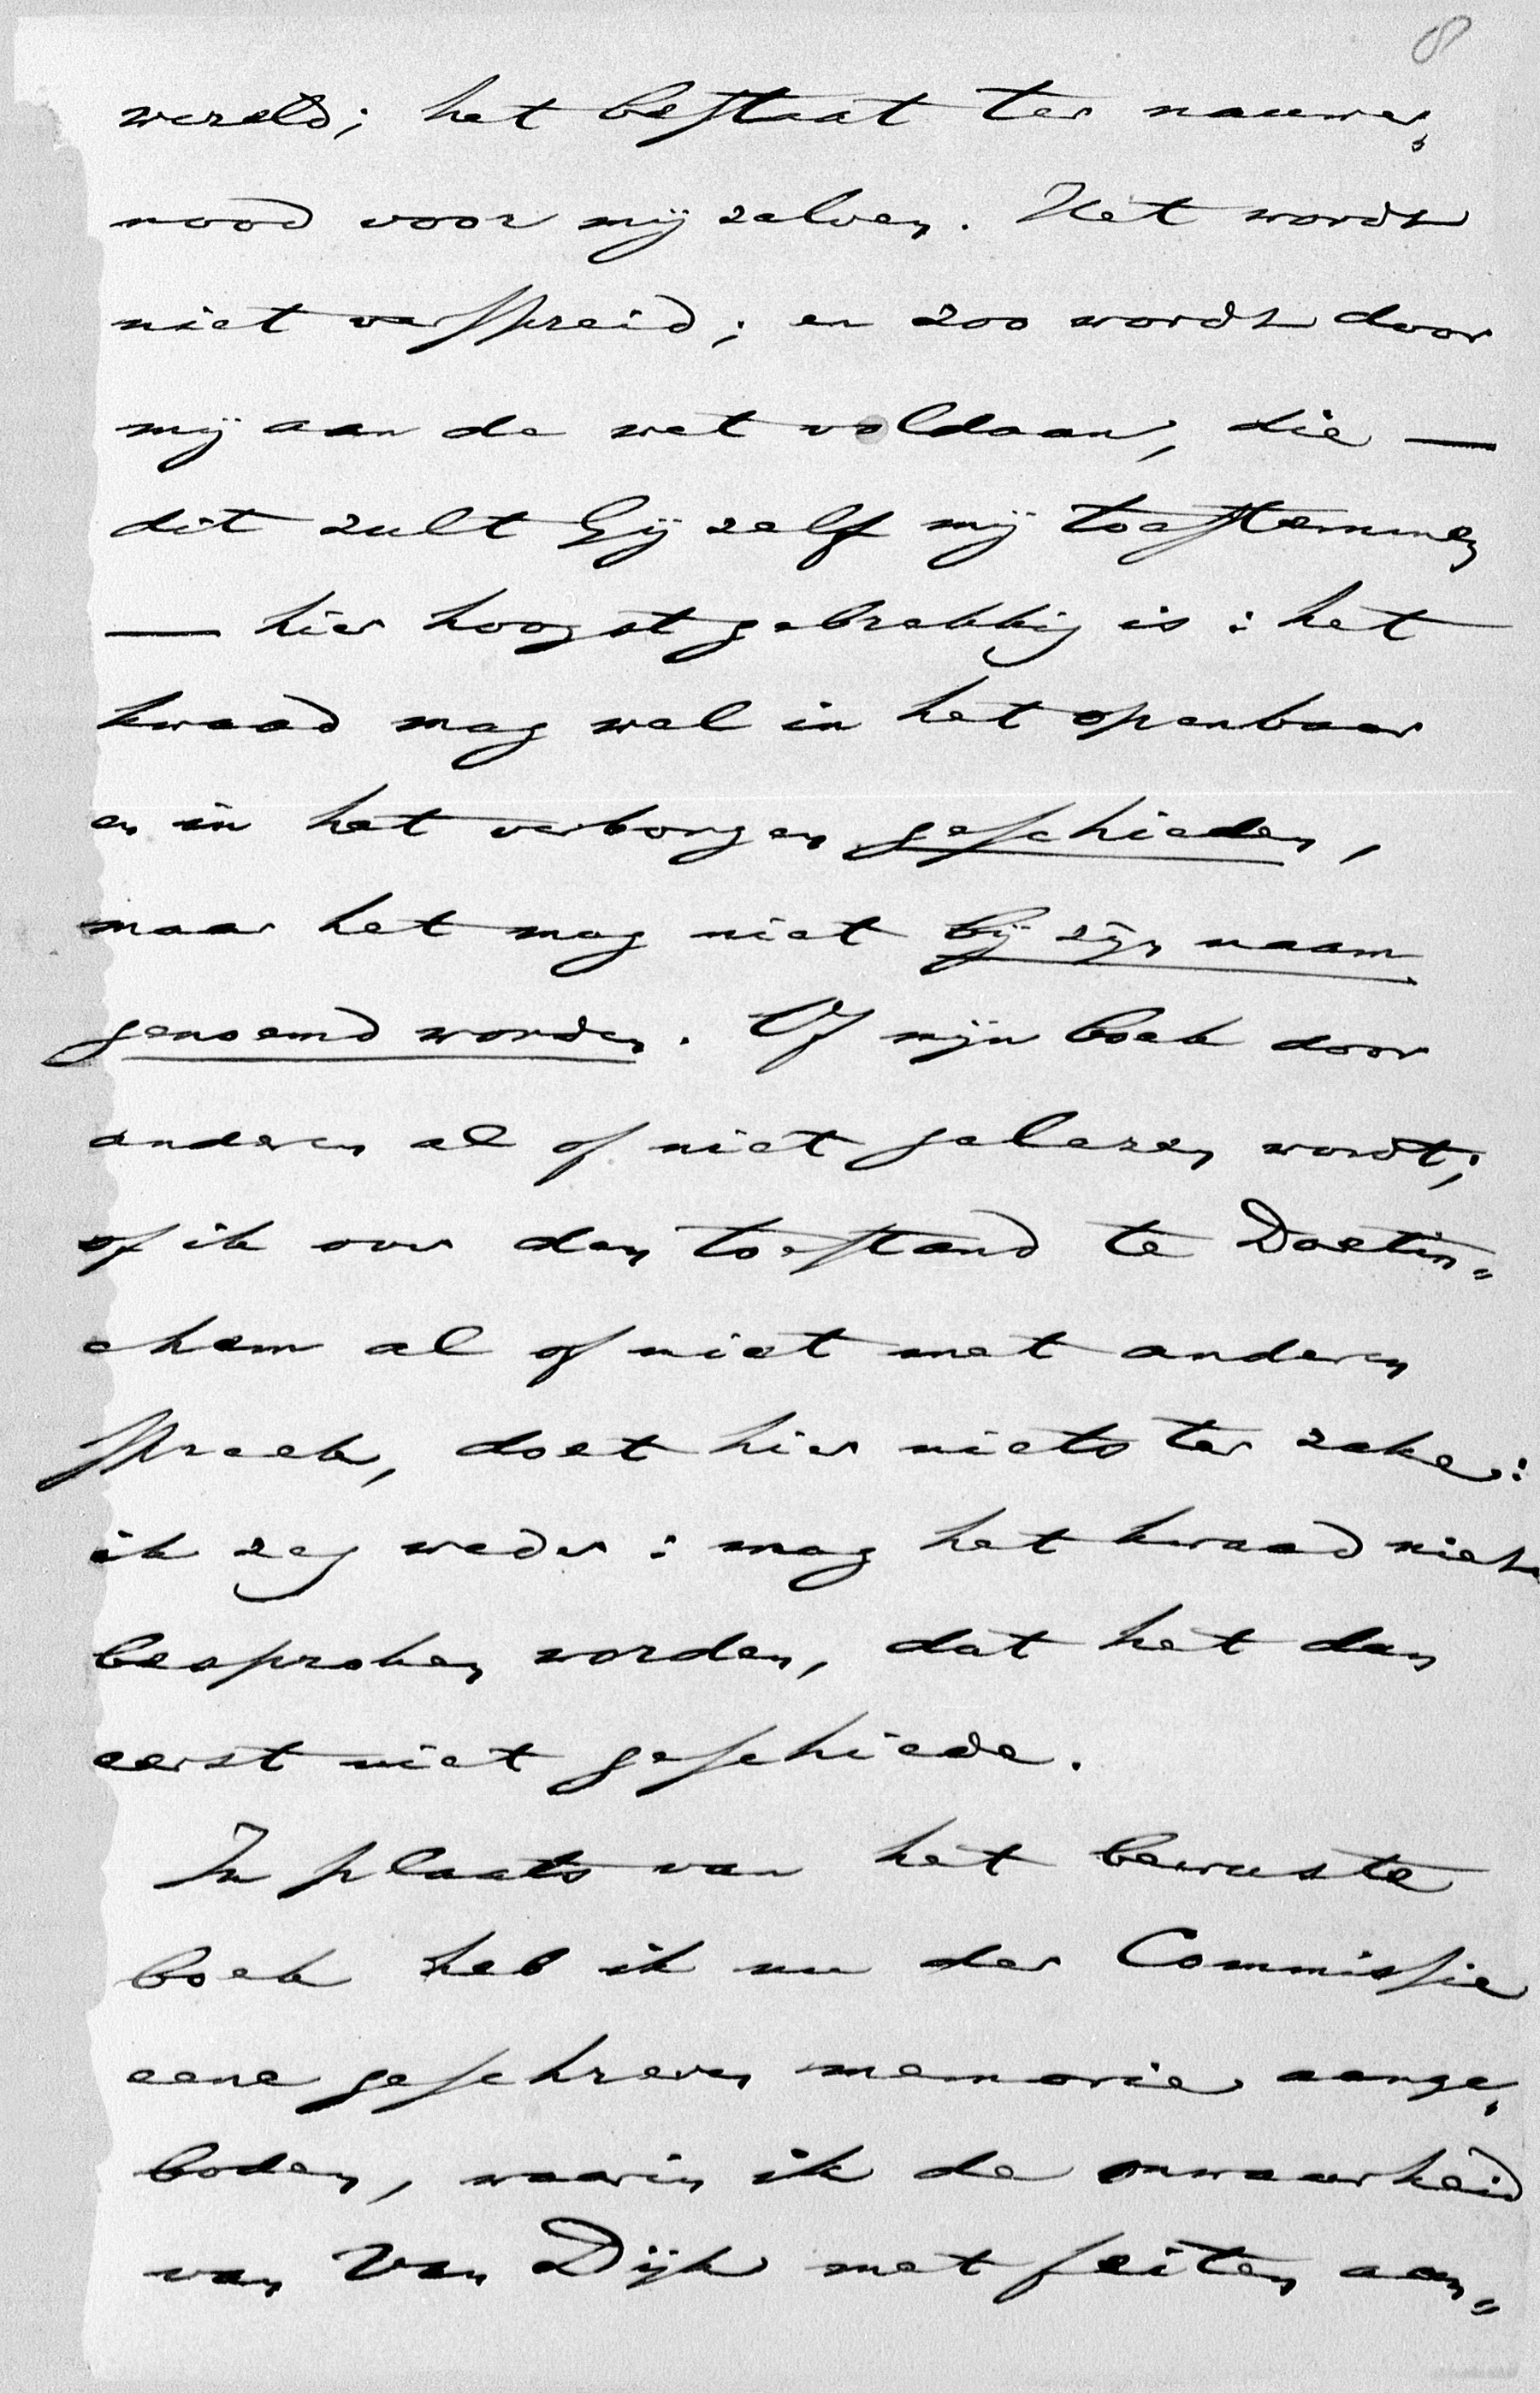 8
wereld; het bestaat ter nauwer„
nood voor mij zelven. Het wordt
niet verspreid; en zoo wordt door
mij aan de wet voldaan, die —
dit zult Gij zelf mij toestemmen
— hier hoogst gebrekkig is: het
kwaad mag wel in het openbaar
en in het verborgen geschieden,
maar het mag niet bij zijn naam
genoemd worden. Of mijn boek door
anderen al of niet gelezen wordt;
of ik over den toestand te Doetin„
chem al of niet met anderen
spreek, doet hier niets ter zake:
ik zeg weder: mag het kwaad niet
besproken worden, dat het dan
eerst niet geschiede.
In plaats van het bewuste
boek heb ik nu der Commissie
eene geschreven memorie aange„
boden, waarin ik de onwaarheid
van Van Dijk met feiten aan„